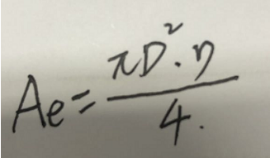 Ae = πD²·η / 4.